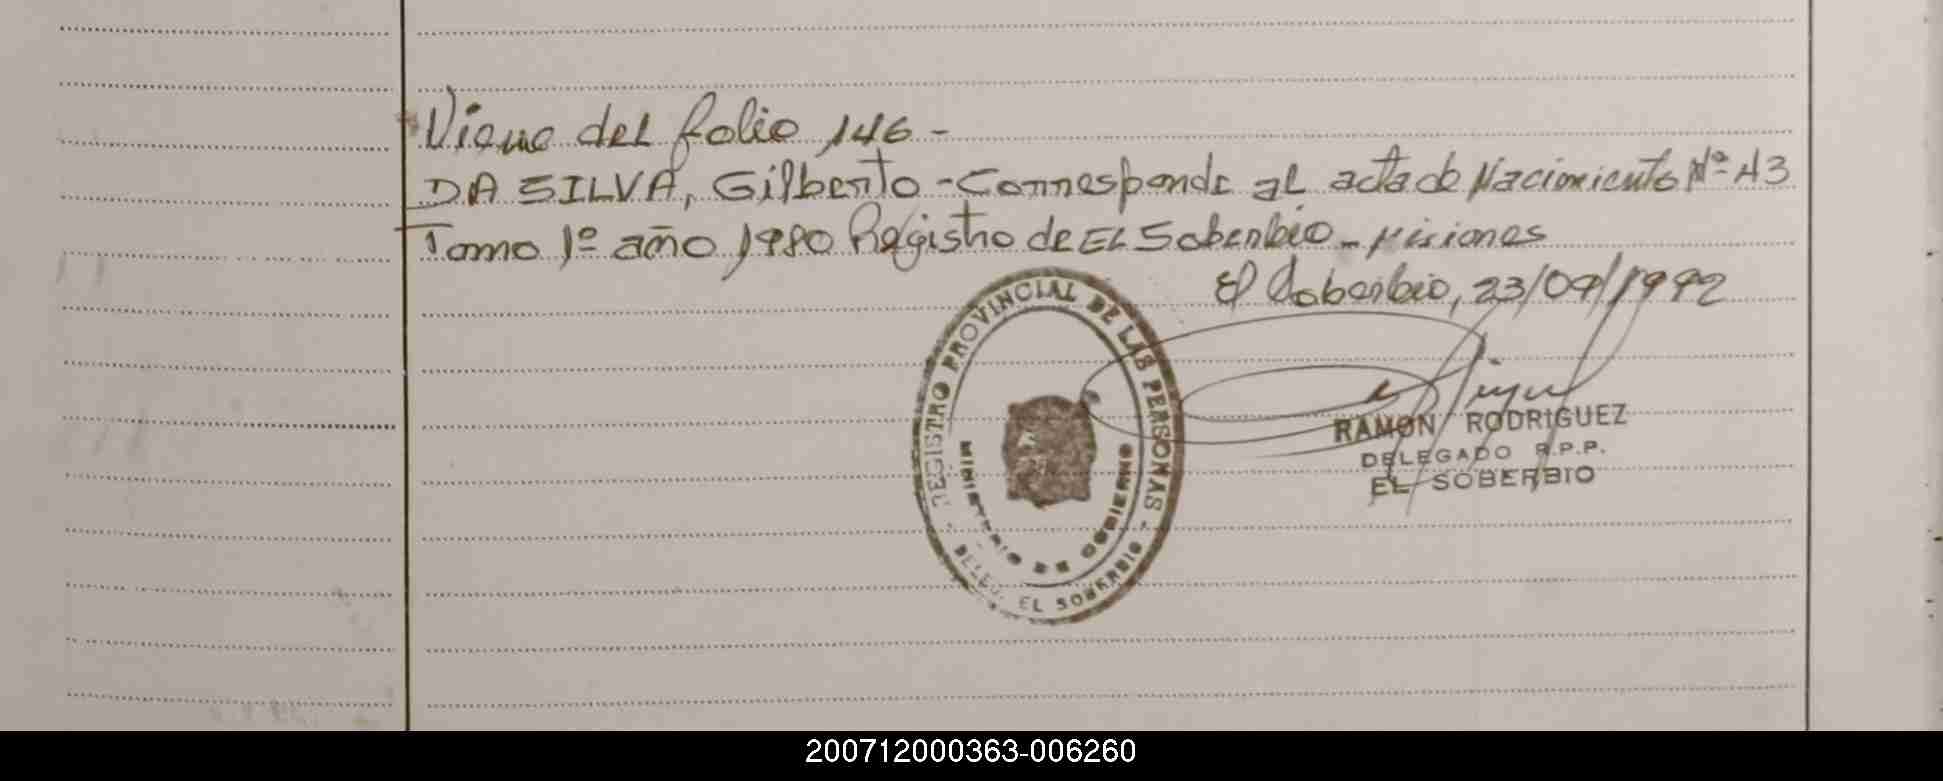 Viene del folio 146 -
DA SILVA, Gilberto - Corresponde al acta de Nacimiento Nº 43
Tomo 1º año 1980 Registro de EL Soberbio - Misiones
El Soberbio, 23/09/1992
REGISTRO PROVINCIAL DE LAS PERSONAS
MINISTERIO DE GOBIERNO
- DELEG. EL SOBERBIO -
RAMON RODRIGUEZ
DELEGADO R.P.P.
EL SOBERBIO
200712000363-006260